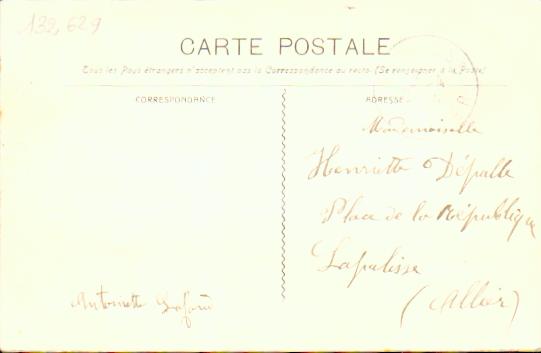 132,629
CARTE POSTALE
Tous les Pays étrangers n'acceptent pas la Correspondance au recto. (Se renseigner à la Poste)
CORRESPONDANCE
ADRESSE
Mademoiselle
Henriette Dépalle
Place de la République
Lapalisse
(Allier)
Antoinette